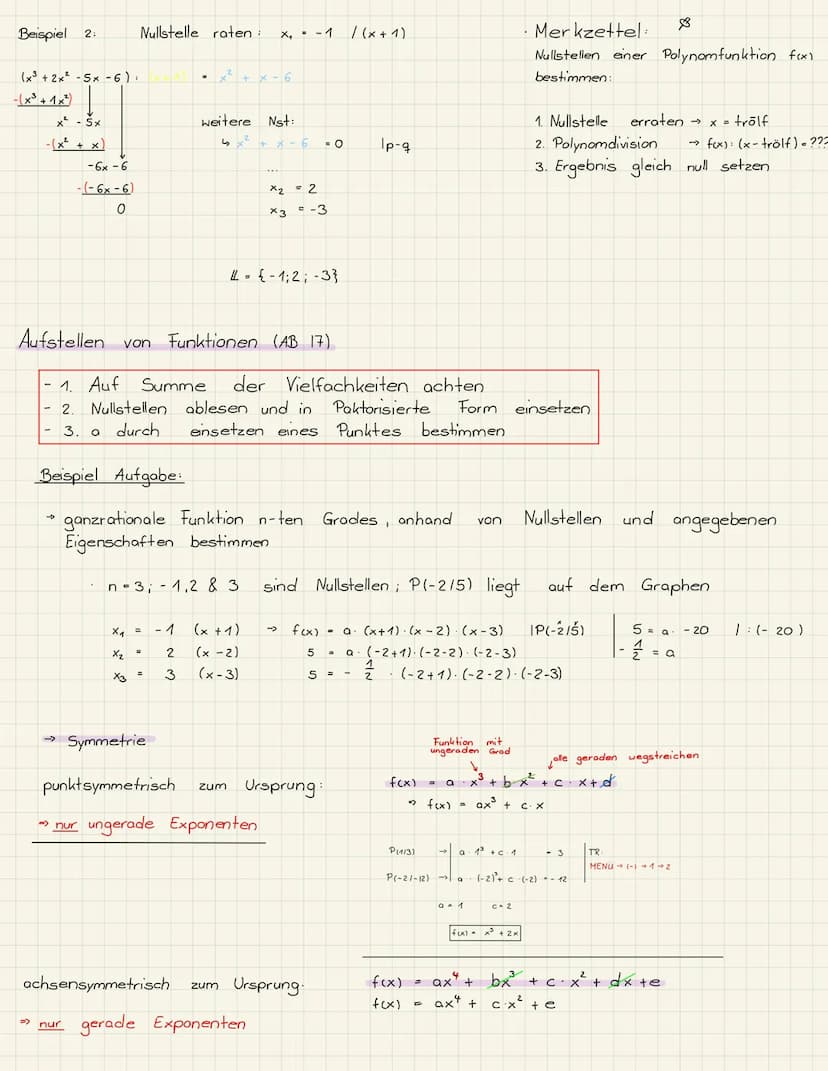 Beispiel 2: Nullstelle raten: x₁ = -1 / (x+1)
(x³ + 2x² - 5x - 6) : (x+1) = x² + x - 6
-(x³ + 1x²)
x² - 5x
-(x² + x)
-6x - 6
-(-6x - 6)
0
weitere Nst:
↳ x² + x - 6 = 0 | p-q
...
x₂ = 2
x₃ = -3
𝕃 = {-1; 2; -3}
· Merkzettel:
Nullstellen einer Polynomfunktion f(x)
bestimmen:
1. Nullstelle erraten → x = trölf
2. Polynomdivision → f(x) : (x - trölf) = ???
3. Ergebnis gleich null setzen
Aufstellen von Funktionen (AB 17)
- 1. Auf Summe der Vielfachkeiten achten
- 2. Nullstellen ablesen und in Faktorisierte Form einsetzen
- 3. a durch einsetzen eines Punktes bestimmen
Beispiel Aufgabe:
→ ganzrationale Funktion n-ten Grades, anhand von Nullstellen und angegebenen
Eigenschaften bestimmen
· n = 3; -1, 2 & 3 sind Nullstellen; P(-2/5) liegt auf dem Graphen
x₁ = -1 (x+1) → f(x) = a · (x+1) · (x-2) · (x-3) | P(-2/5) | 5 = a · -20 / : (-20)
x₂ = 2 (x-2) 5 = a · (-2+1) · (-2-2) · (-2-3) | -1/2 = a
x₃ = 3 (x-3) 5 = -1/2 · (-2+1) · (-2-2) · (-2-3)
→ Symmetrie
punktsymmetrisch zum Ursprung:
⇒ nur ungerade Exponenten
Funktion mit
ungeraden Grad
alle geraden wegstreichen
f(x) = a · x³ + b x² + c · x + d
⇒ f(x) = ax³ + c · x
P(1/3) → | a · 1³ + c · 1 = 3 | TR:
MENU → (-) → 1 → 2
P(-2/-12) → | a · (-2)³ + c · (-2) = -12
a = 1 c = 2
f(x) = x³ + 2x
achsensymmetrisch zum Ursprung:
⇒ nur gerade Exponenten
f(x) = ax⁴ + bx³ + c · x² + dx + e
f(x) = ax⁴ + c · x² + e